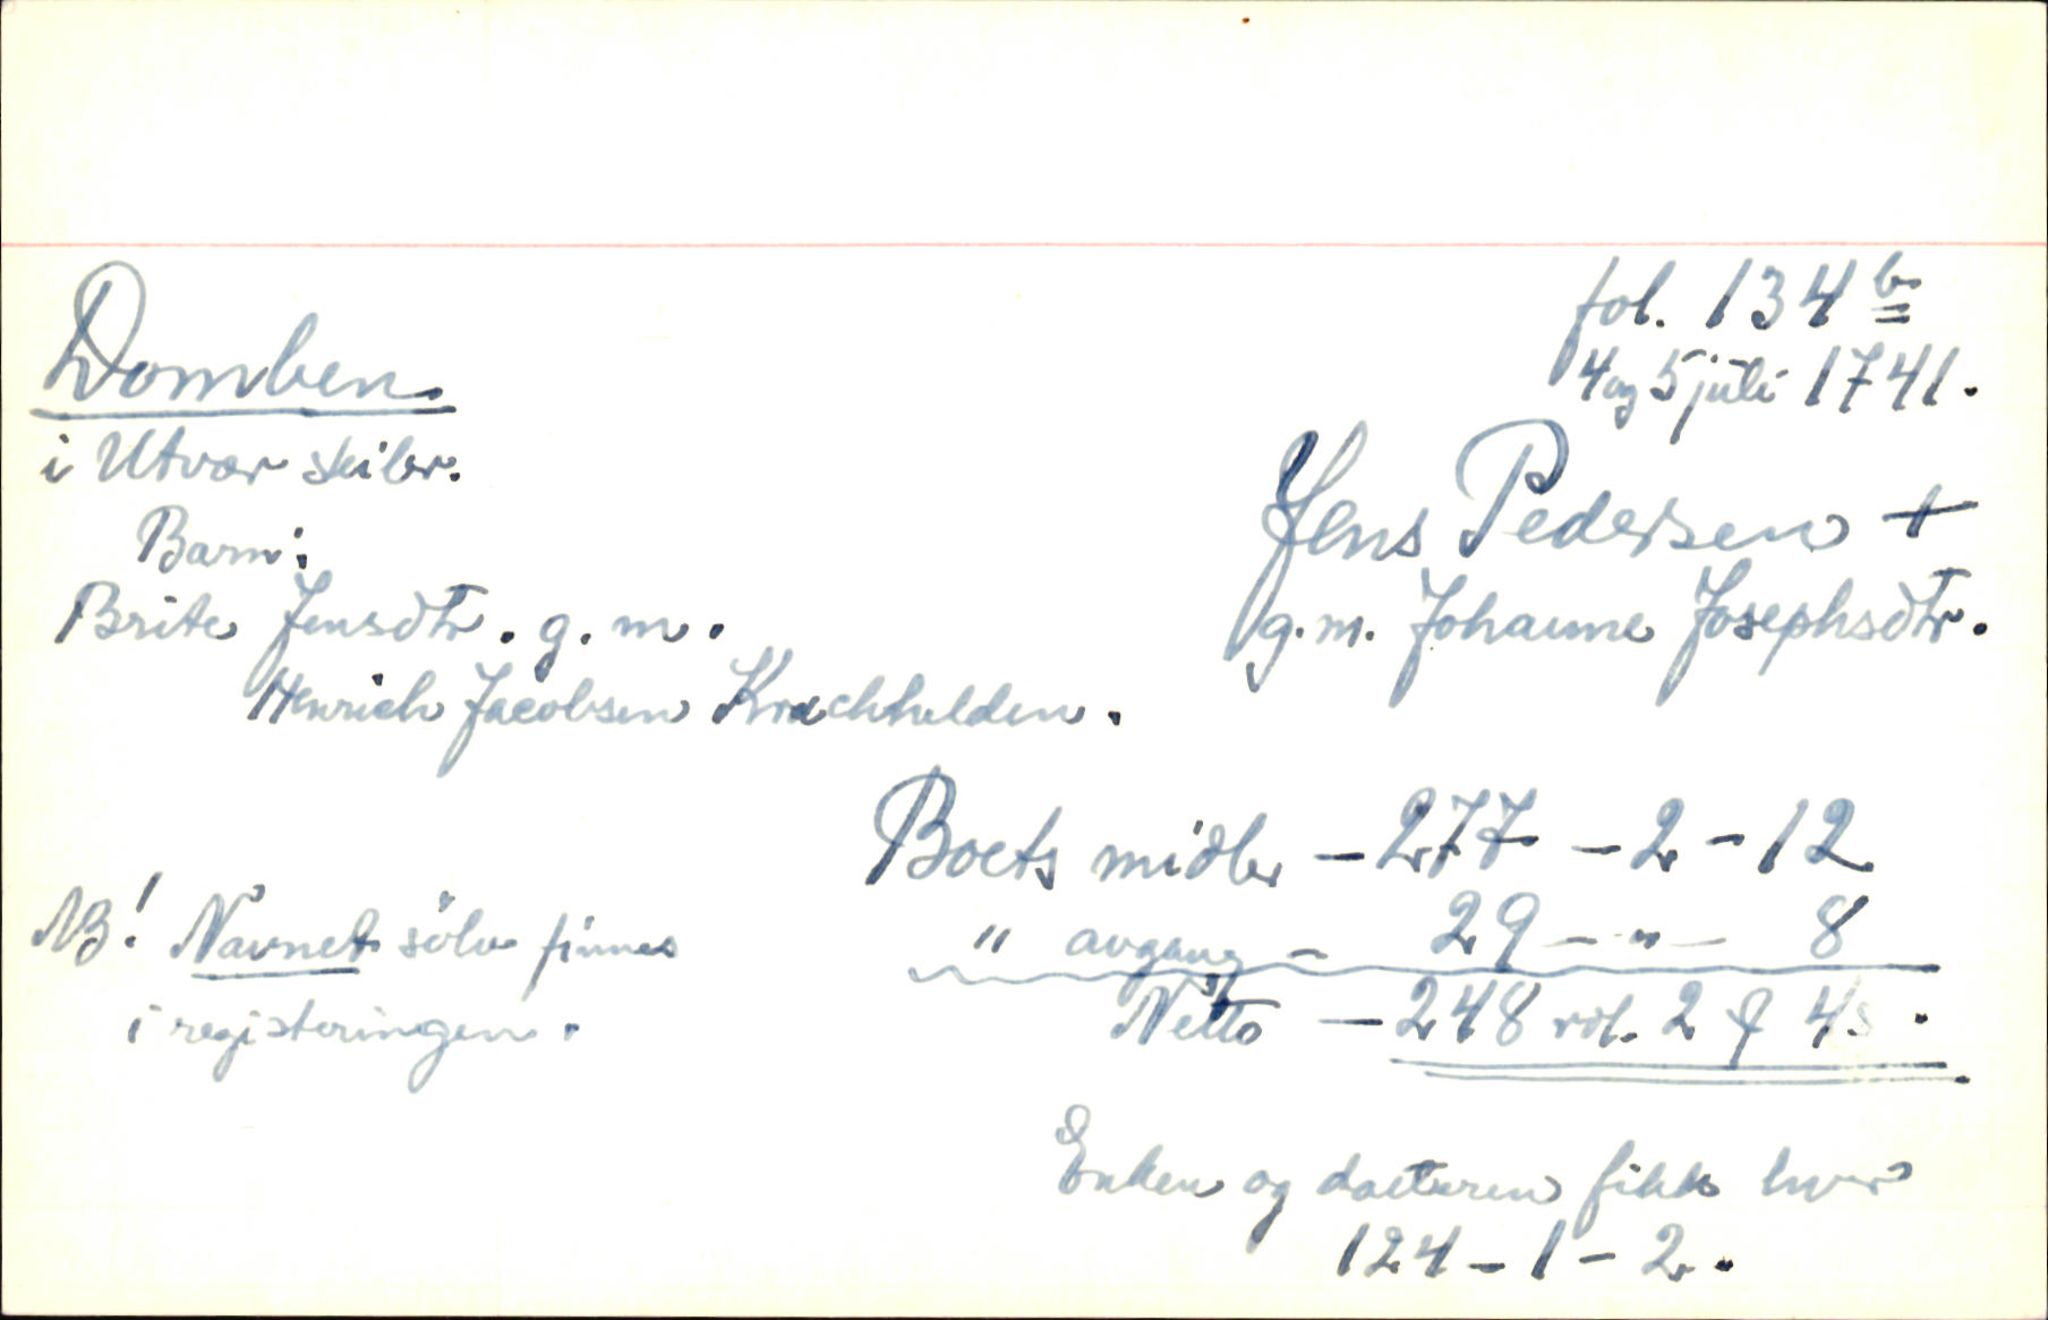 Domben.
i Utvær skibr.
Barn:
Brite Jensdtr. g. m.
Henrich Jacobsen Krachhelden.
NB! Navnet sölv finnes
i registeringen.
fol. 134 b
4 og 5 juli 1741.
Jens Pedersen +
g. m. Johanne Josephsdtr.
Boets midler - 277 - 2 - 12
" avgang - 29 - " - 8
Netto - 248 rdl. 2 ƒ 4 s.
Enken og dotteren fikk hver
124 - 1 - 2.